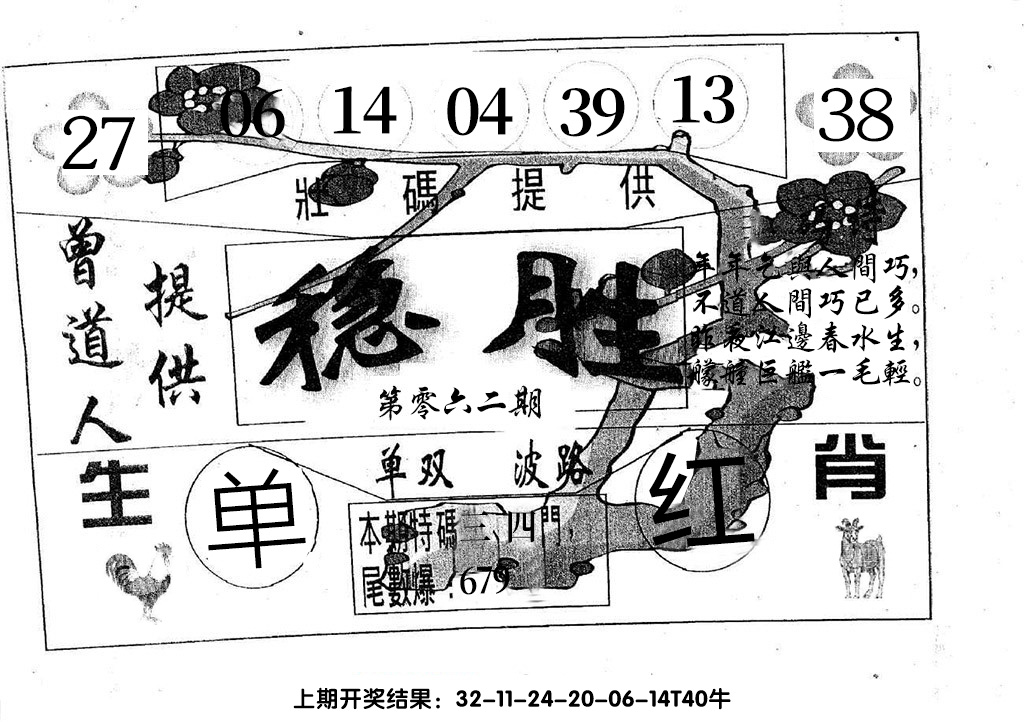 27 06 14 04 39 13 38
壯碼提供
曾道人
提供
穩胜
第零六二期
特
年年乞與人間巧，
不道人間巧已多。
昨夜江邊春水生，
艨艟巨艦一毛輕。
生肖
单双 波路
单 红
本期特碼三、四門，
尾數爆：679
上期开奖结果：32-11-24-20-06-14T40牛